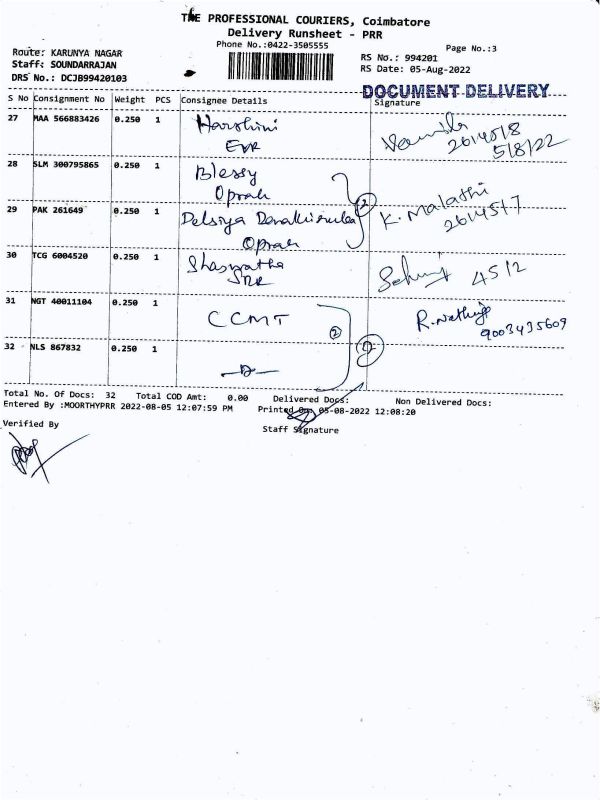 THE PROFESSIONAL COURIERS, Coimbatore
Delivery Runsheet - PRR
Phone No.:0422-3505555
Page No.:3
Route: KARUNYA NAGAR
RS No.: 994201
Staff: SOUNDARRAJAN
RS Date: 05-Aug-2022
DRS No.: DCJB99420103
DOCUMENT DELIVERY
S No Consignment No Weight PCS Consignee Details Signature
27 MAA 566883426 0.250 1 Harshini
EVR
26145/8
5/8/22
28 SLM 300795865 0.250 1 Blessy
Oprah
2
29 PAK 261649 0.250 1 Delsiya
Oprah
K. Malathi
2614517
30 TCG 6004520 0.250 1
4512
31 NGT 40011104 0.250 1 CCMT
2
9003435609
32 NLS 867832 0.250 1
Total No. Of Docs: 32 Total COD Amt: 0.00 Delivered Docs: Non Delivered Docs:
Entered By :MOORTHYPRR 2022-08-05 12:07:59 PM Printed On: 05-08-2022 12:08:20
Verified By
Staff Signature